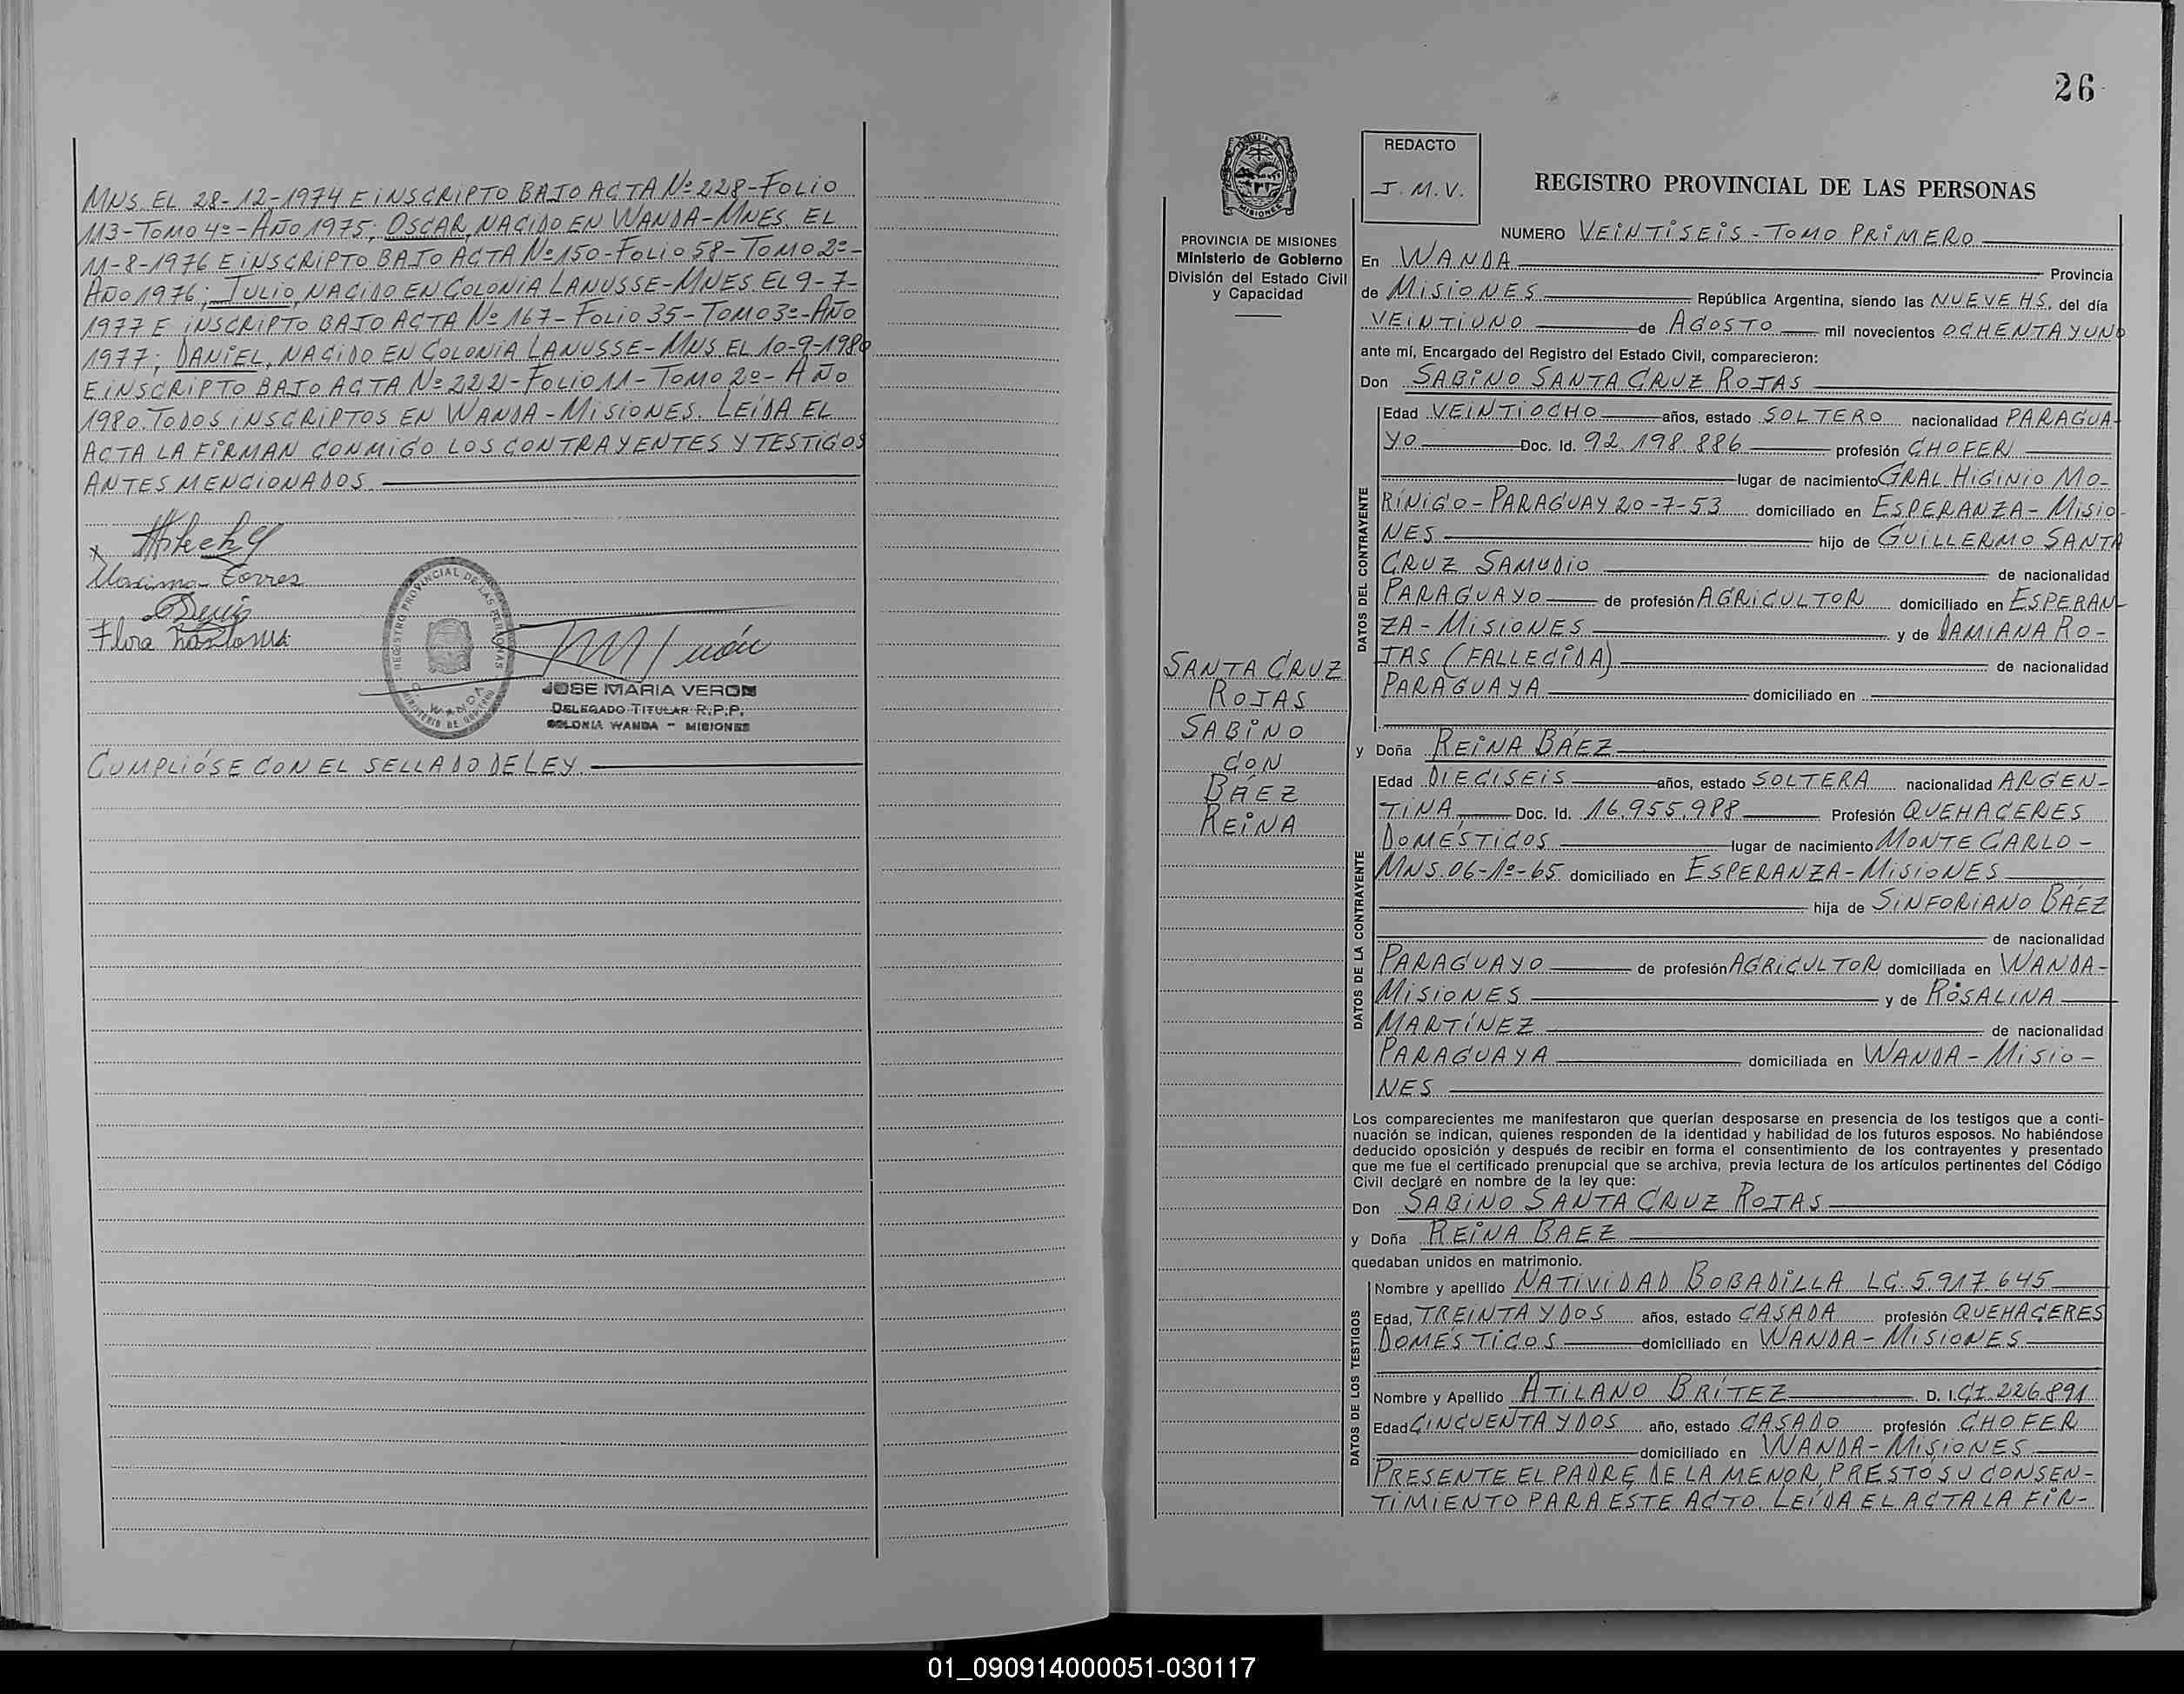 MNS. EL 28-12-1974 E INSCRIPTO BAJO ACTA Nº 228-FOLIO
113-TOMO 4º-AÑO 1975; OSCAR, NACIDO EN WANDA-MNES. EL
11-8-1976 E INSCRIPTO BAJO ACTA Nº 150-FOLIO 58-TOMO 2º-
AÑO 1976; JULIO, NACIDO EN COLONIA LANUSSE-MNES. EL 9-7-
1977 E INSCRIPTO BAJO ACTA Nº 167-FOLIO 35-TOMO 3º-AÑO
1977; DANIEL, NACIDO EN COLONIA LANUSSE-MNS. EL 10-9-1980
E INSCRIPTO BAJO ACTA Nº 222-FOLIO 11-TOMO 2º-AÑO
1980. TODOS INSCRIPTOS EN WANDA-MISIONES. LEÍDA EL
ACTA LA FIRMAN CONMIGO LOS CONTRAYENTES Y TESTIGOS
ANTES MENCIONADOS.
x
Maxima Torres
Flora
REGISTRO PROVINCIAL DE LAS PERSONAS
MINISTERIO DE GOBIERNO
WANDA
JOSE MARIA VERON
DELEGADO TITULAR R.P.P.
COLONIA WANDA - MISIONES
CUMPLIÓSE CON EL SELLADO DE LEY.
26
MISIONES
PROVINCIA DE MISIONES
Ministerio de Gobierno
División del Estado Civil
y Capacidad
SANTA CRUZ
ROJAS
SABINO
CON
BÁEZ
REINA
REDACTO
J.M.V.
REGISTRO PROVINCIAL DE LAS PERSONAS
NUMERO VEINTISEIS-TOMO PRIMERO
En WANDA Provincia
de MISIONES República Argentina, siendo las NUEVE HS. del día
VEINTIUNO de AGOSTO mil novecientos OCHENTA Y UNO
ante mí, Encargado del Registro del Estado Civil, comparecieron:
Don SABINO SANTA CRUZ ROJAS
DATOS DEL CONTRAYENTE
Edad VEINTIOCHO años, estado SOLTERO nacionalidad PARAGUA-
YO Doc. Id. 92.198.886 profesión CHOFER
lugar de nacimiento GRAL HIGINIO MO-
RÍNIGO-PARAGUAY 20-7-53 domiciliado en ESPERANZA-MISIO-
NES hijo de GUILLERMO SANTA
CRUZ SAMUDIO de nacionalidad
PARAGUAYO de profesión AGRICULTOR domiciliado en ESPERAN-
ZA-MISIONES y de DAMIANA RO-
JAS (FALLECIDA) de nacionalidad
PARAGUAYA domiciliado en
y Doña REINA BÁEZ
DATOS DE LA CONTRAYENTE
Edad DIECISEIS años, estado SOLTERA nacionalidad ARGEN-
TINA Doc. Id. 16.955.988 Profesión QUEHACERES
DOMÉSTICOS lugar de nacimiento MONTE CARLO-
MNS. 06-1º-65 domiciliado en ESPERANZA-MISIONES
hija de SINFORIANO BÁEZ
de nacionalidad
PARAGUAYO de profesión AGRICULTOR domiciliada en WANDA-
MISIONES y de ROSALINA
MARTÍNEZ de nacionalidad
PARAGUAYA domiciliada en WANDA-MISIO-
NES
Los comparecientes me manifestaron que querían desposarse en presencia de los testigos que a conti-
nuación se indican, quienes responden de la identidad y habilidad de los futuros esposos. No habiéndose
deducido oposición y después de recibir en forma el consentimiento de los contrayentes y presentado
que me fue el certificado prenupcial que se archiva, previa lectura de los artículos pertinentes del Código
Civil declaré en nombre de la ley que:
Don SABINO SANTA CRUZ ROJAS
y Doña REINA BAEZ
quedaban unidos en matrimonio.
DATOS DE LOS TESTIGOS
Nombre y apellido NATIVIDAD BOBADILLA LC. 5.917.645
Edad, TREINTA Y DOS años, estado CASADA profesión QUEHACERES
DOMÉSTICOS domiciliado en WANDA-MISIONES
Nombre y Apellido ATILANO BRÍTEZ D. I. CI. 226.891
Edad CINCUENTA Y DOS año, estado CASADO profesión CHOFER
domiciliado en WANDA-MISIONES
PRESENTE EL PADRE DE LA MENOR, PRESTÓ SU CONSEN-
TIMIENTO PARA ÉSTE ACTO. LEÍDA EL ACTA LA FIR-
01_090914000051-030117